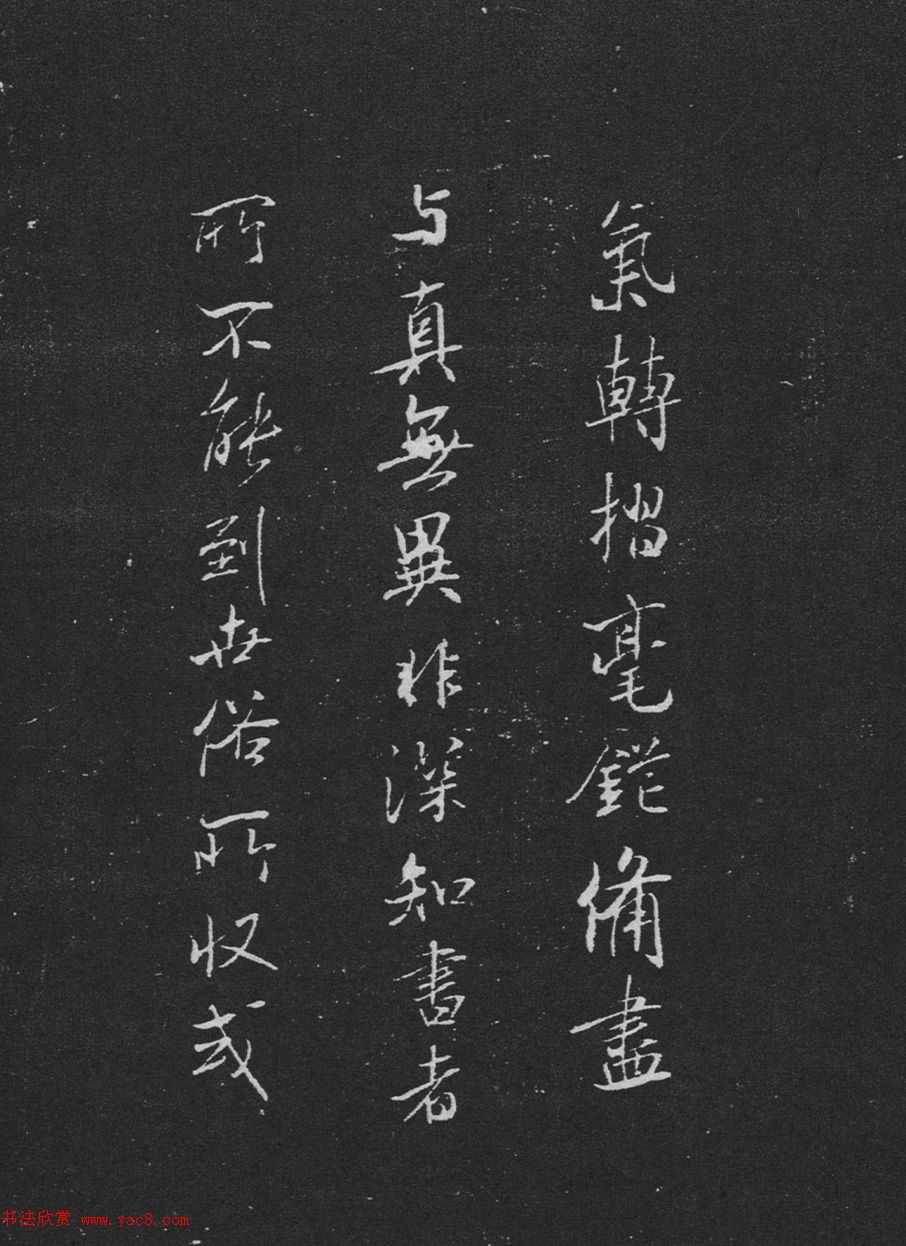 氣轉摺毫鋩備盡
与真無異非深知書者
所不能到世俗所收或
书法欣赏 www.yac8.com